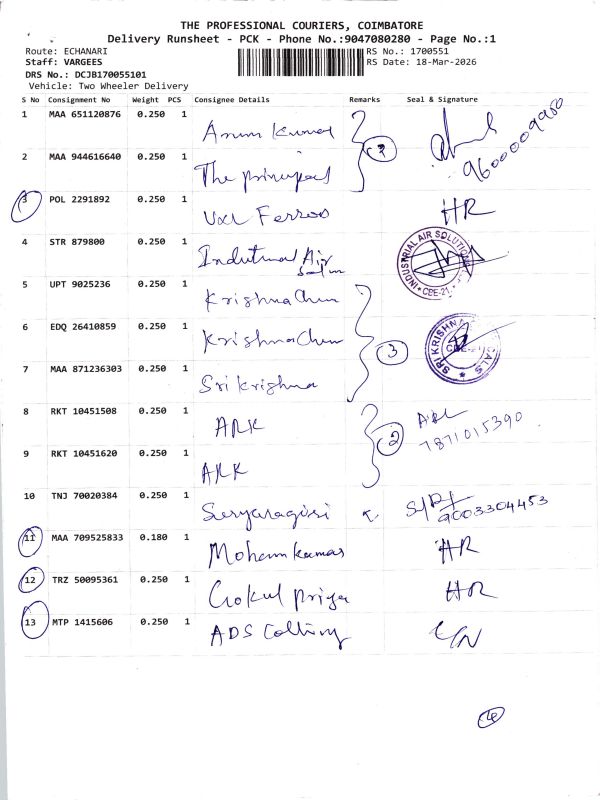 THE PROFESSIONAL COURIERS, COIMBATORE
Delivery Runsheet - PCK - Phone No.:9047080280 - Page No.:1
Route: ECHANARI
RS No.: 1700551
Staff: VARGEES
RS Date: 18-Mar-2026
DRS No.: DCJB170055101
Vehicle: Two Wheeler Delivery
S No Consignment No Weight PCS Consignee Details Remarks Seal & Signature
1 MAA 651120876 0.250 1 Arun Kumar
9600009980
2 MAA 944616640 0.250 1 The principal 2
3 POL 2291892 0.250 1 Ferros HR
4 STR 879800 0.250 1 Indutrial Air
INDUSTRIAL AIR SOLUTION
CBE-21
5 UPT 9025236 0.250 1 Krishna Chem
6 EDQ 26410859 0.250 1 Krishna Chem 3
SRI KRISHNA
7 MAA 871236303 0.250 1 Sri Krishna
8 RKT 10451508 0.250 1 ARK 2
7871015390
9 RKT 10451620 0.250 1 ARK
10 TNJ 70020384 0.250 1
9003304453
11 MAA 709525833 0.180 1 Mohan kumar HR
12 TRZ 50095361 0.250 1 Gokul priya HR
13 MTP 1415606 0.250 1 ADS
4